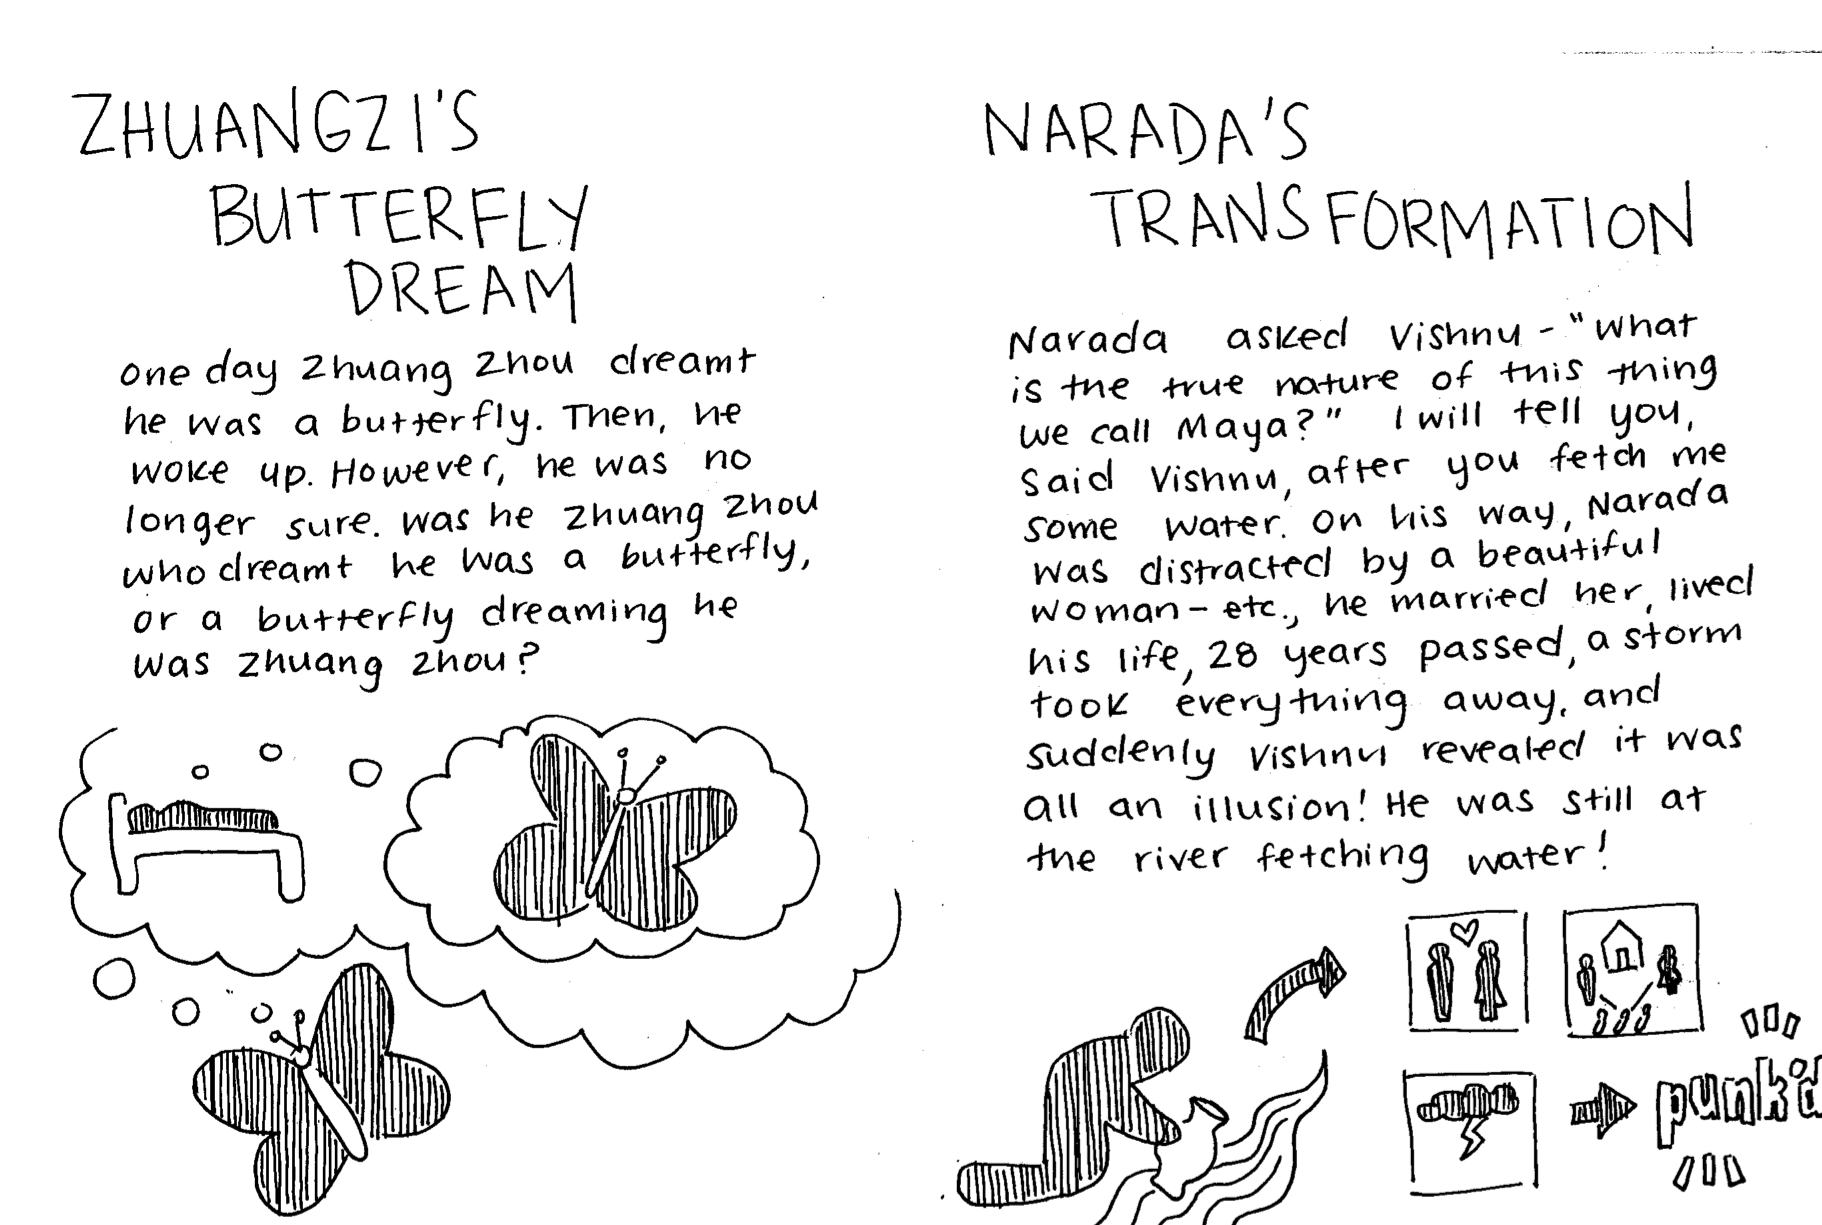 ZHUANGZI'S
BUTTERFLY
DREAM
one day Zhuang Zhou dreamt
he was a butterfly. Then, he
woke up. However, he was no
longer sure. was he Zhuang Zhou
who dreamt he was a butterfly,
or a butterfly dreaming he
was Zhuang Zhou?
NARADA'S
TRANSFORMATION
Narada asked Vishnu - "what
is the true nature of this thing
we call Maya?" I will tell you,
said Vishnu, after you fetch me
some water. On his way, Narada
was distracted by a beautiful
woman - etc., he married her, lived
his life, 28 years passed, a storm
took everything away, and
suddenly Vishnu revealed it was
all an illusion! He was still at
the river fetching water!
punk'd